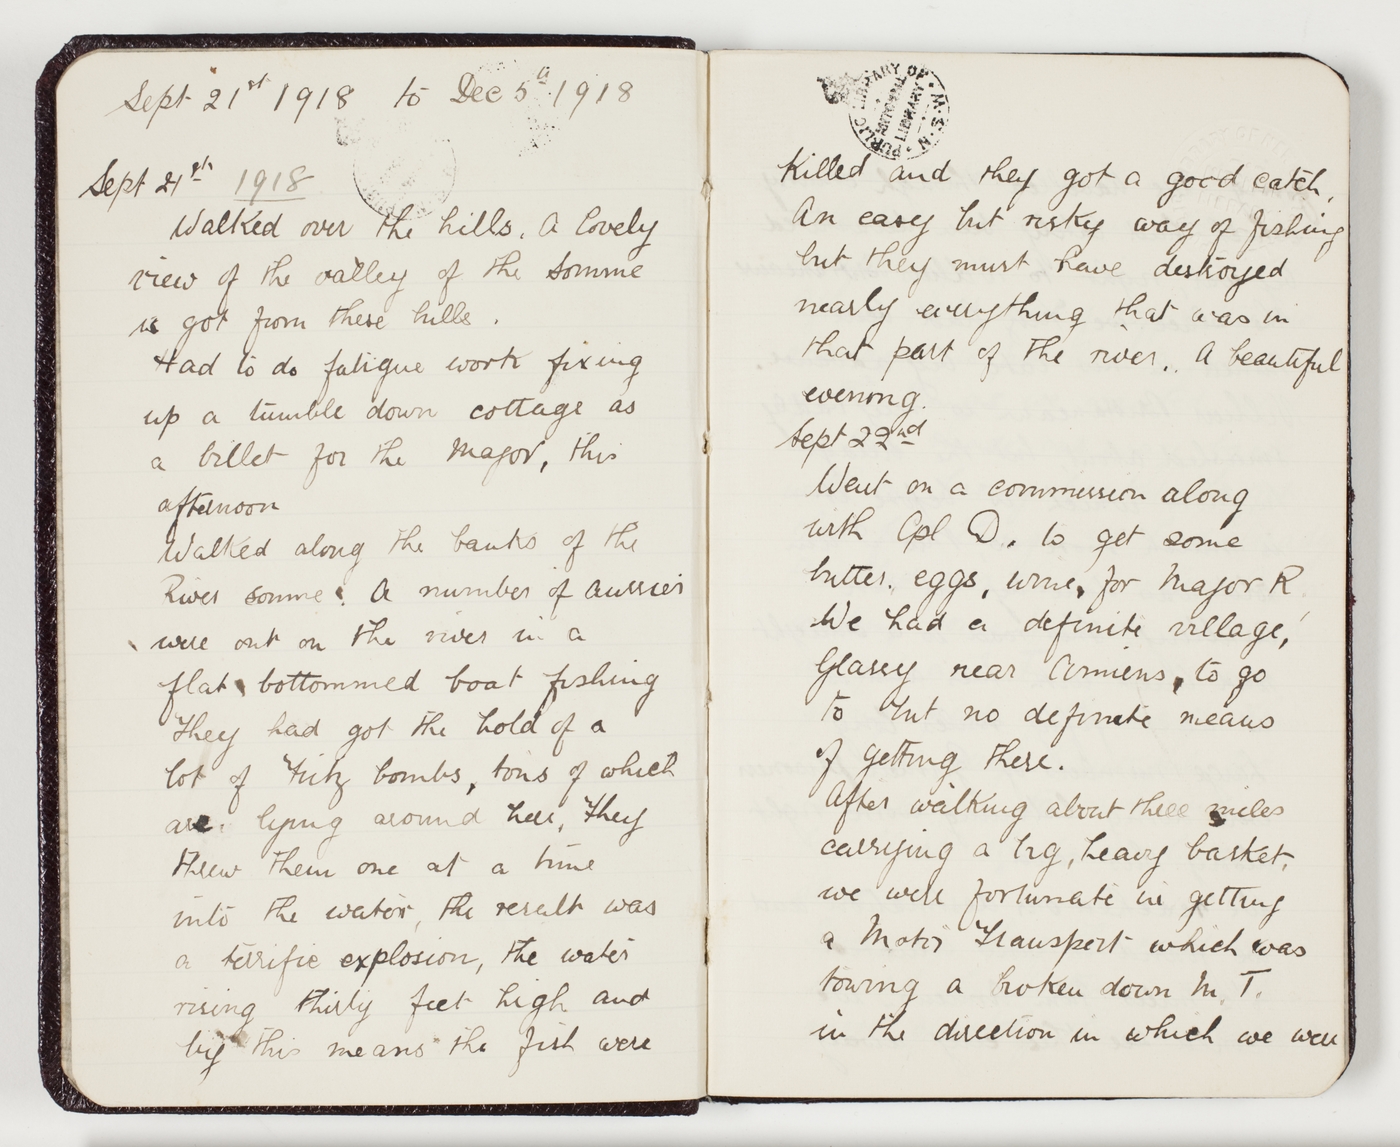 Sept 21st 1918 to Dec 5th 1918
Sept 21st 1918
Walked over the hills. A lovely
view of the valley of the Somme
is got from these hills.
Had to do fatigue work fixing
up a tumble down cottage as
a billet for the Major, this
afternoon
Walked along the banks of the
River Somme. A number of Aussies
were out on the river in a
flat bottommed boat fishing
They had got the hold of a
lot of Fritz bombs, tons of which
are lying around here, they
threw them one at a time
into the water, the result was
a terrific explosion, the water
rising thirty feet high and
by this means the fish were
PUBLIC LIBRARY OF N.S.W.
MITCHELL
LIBRARY
killed and they got a good catch.
An easy but risky way of fishing
but they must have destroyed
nearly everything that was in
that part of the river. A beautiful
evening.
Sept 22nd
Went on a commission along
with Cpl D. to get some
butter, eggs, wine, for Major R.
We had a definite village,
Glasey near Amiens, to go
to but no definite means
of getting there.
After walking about three miles
carrying a big, heavy basket,
we were fortunate in getting
a Motor Transport which was
towing a broken down M. T.
in the direction in which we were